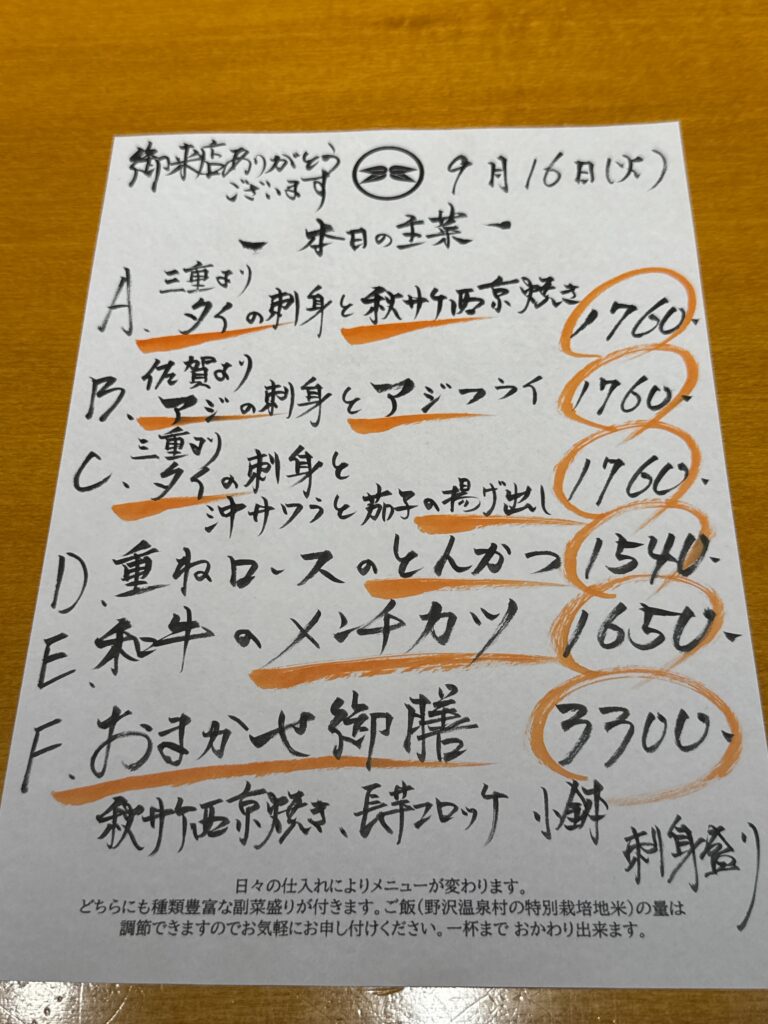 御来店ありがとう
ございます
9月16日(火)
ー 本日の主菜 ー
A. 三重より
タイの刺身と秋サケ西京焼き 1760-
B. 佐賀より
アジの刺身とアジフライ 1760-
C. 三重より
タイの刺身と
沖サワラと茄子の揚げ出し 1760-
D. 重ねロースのとんかつ 1540-
E. 和牛のメンチカツ 1650-
F. おまかせ御膳 3300-
秋サケ西京焼き、長芋コロッケ 小鉢
刺身盛り
日々の仕入れによりメニューが変わります。
どちらにも種類豊富な副菜盛りが付きます。ご飯(野沢温泉村の特別栽培地米)の量は
調節できますのでお気軽にお申し付けください。一杯まで おかわり出来ます。